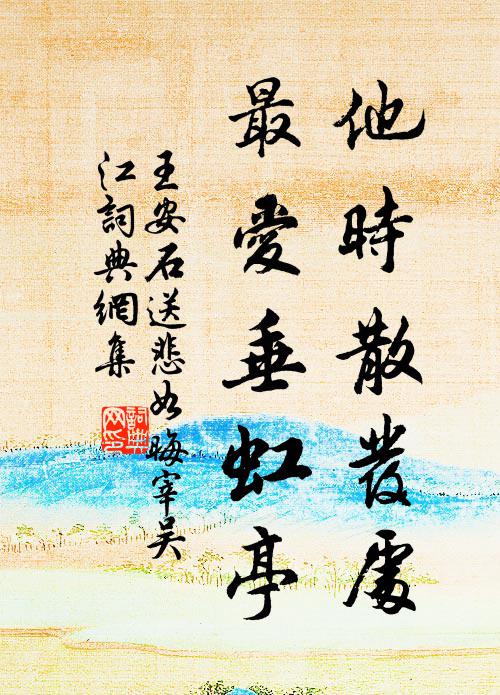 他時散發處
最愛垂虹亭
王安石送悲如晦宰吳
江詞典網集
詞典網印